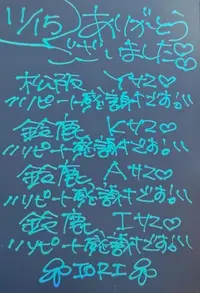 11/15 ありがとう
ございました♡♡
松阪 Yサン♡
リピート感謝です!!
鈴鹿 Kサン♡
リピート感謝です!!
鈴鹿 Aサン♡
リピート感謝です!!
鈴鹿 Iサン♡
リピート感謝です!!
IORI